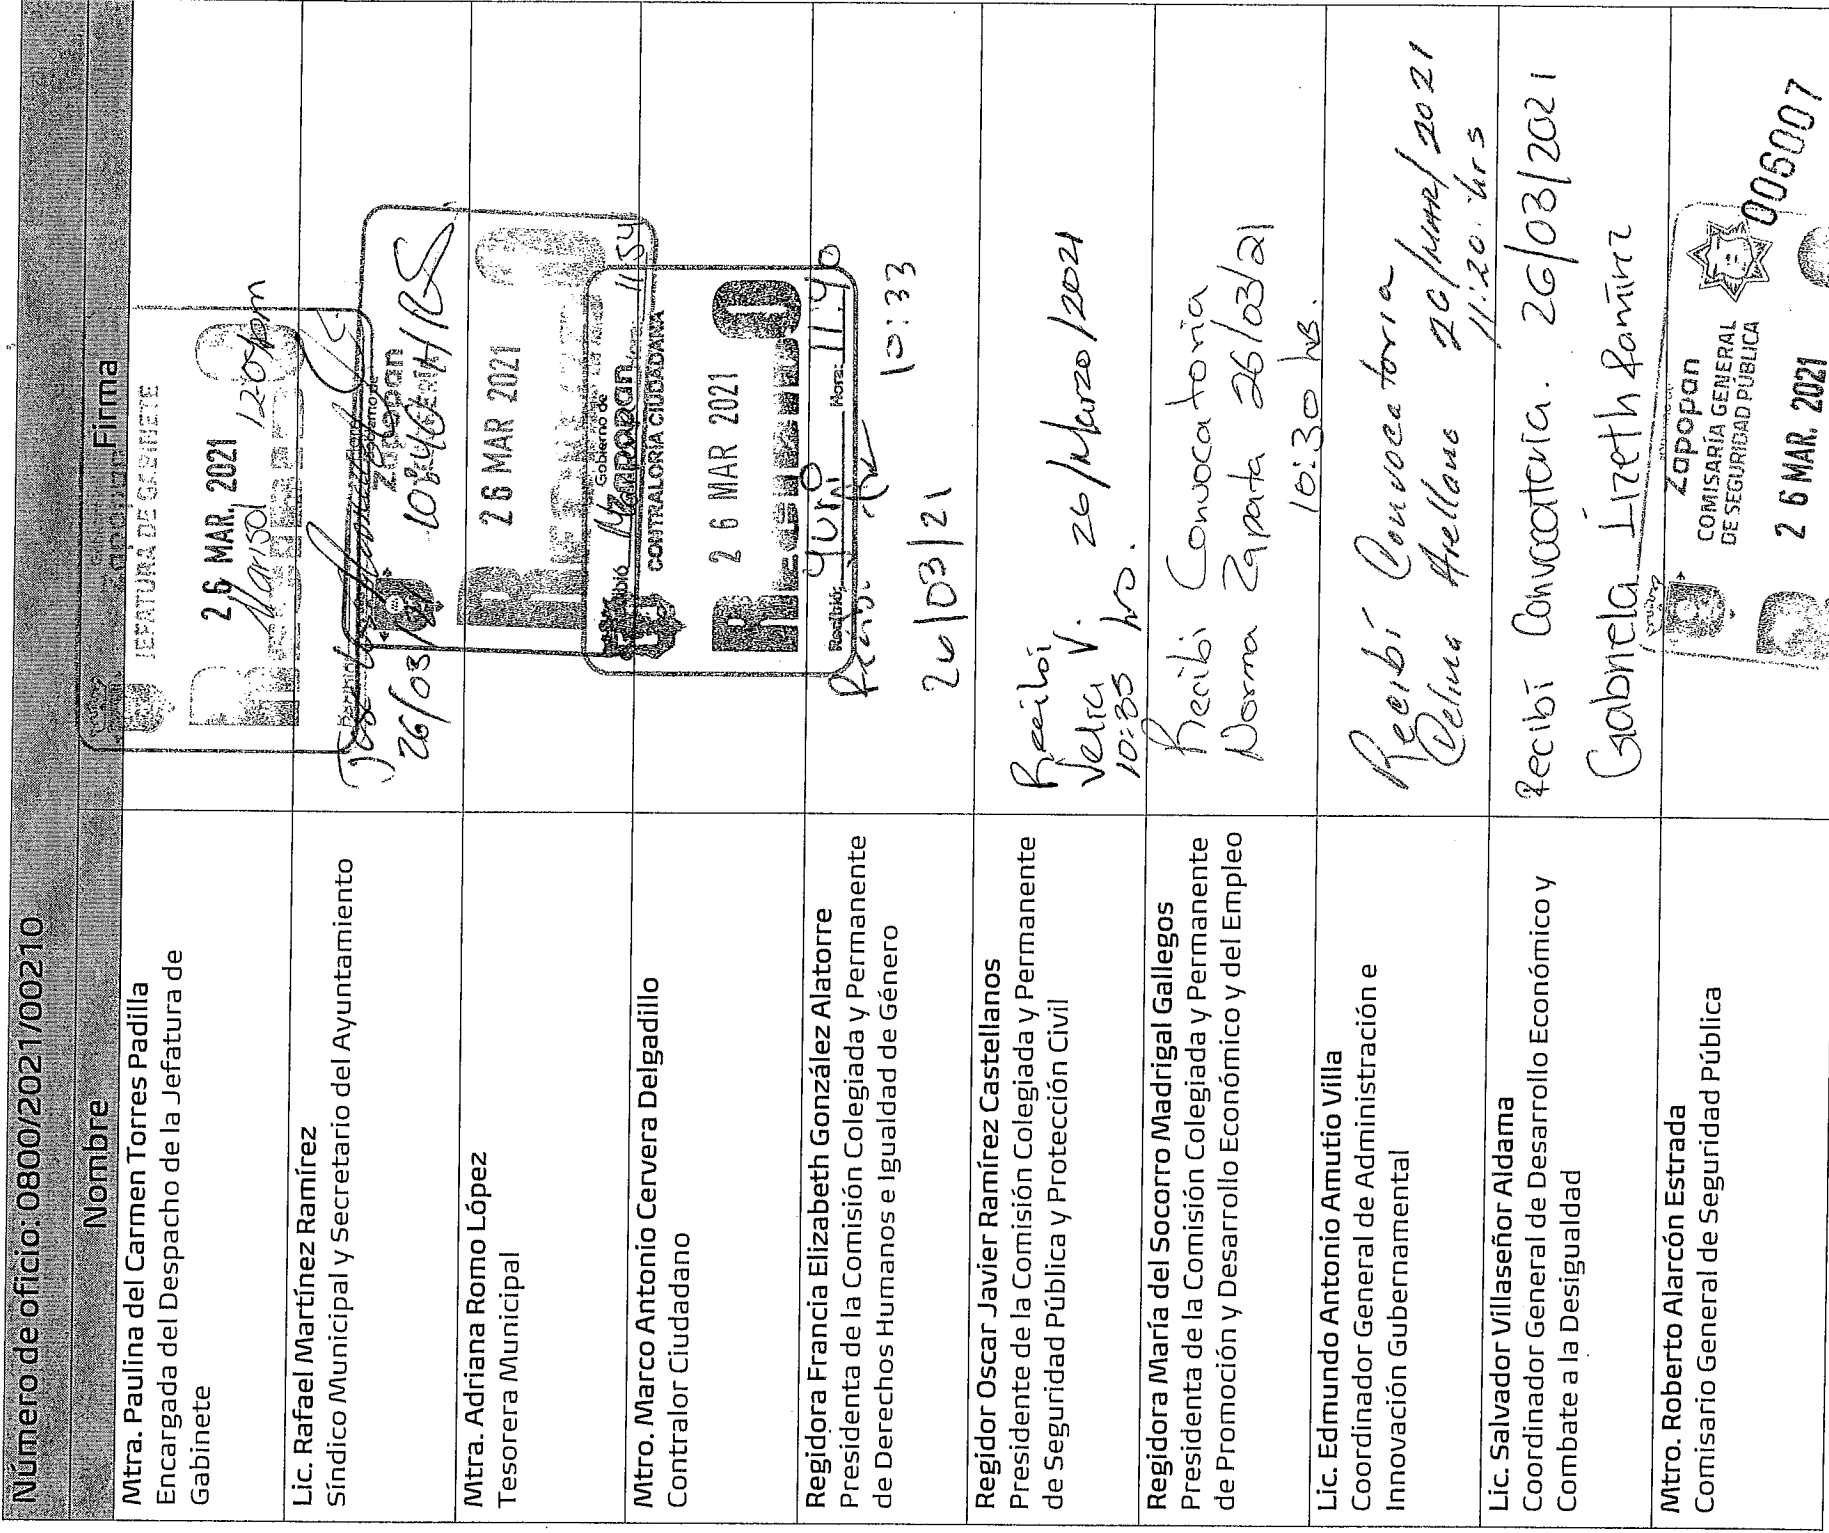 Número de oficio: 0800/2021/00210
Nombre
Firma
Mtra. Paulina del Carmen Torres Padilla
Encargada del Despacho de la Jefatura de
Gabinete
JEFATURA DE GABINETE
26 MAR. 2021
Marisol 12:05pm
Lic. Rafael Martínez Ramírez
Síndico Municipal y Secretario del Ayuntamiento
26/03/21
10:40 HRS
Zapopan
Mtra. Adriana Romo López
Tesorera Municipal
26 MAR 2021
Mtro. Marco Antonio Cervera Delgadillo
Contralor Ciudadano
11:54
Gobierno de
Zapopan
CONTRALORÍA CIUDADANA
2 6 MAR 2021
Recibido
Recibió: Yuri Hora: 11:40
Regidora Francia Elizabeth González Alatorre
Presidenta de la Comisión Colegiada y Permanente
de Derechos Humanos e Igualdad de Género
26/03/21 10:33
Regidor Oscar Javier Ramírez Castellanos
Presidente de la Comisión Colegiada y Permanente
de Seguridad Pública y Protección Civil
Recibí
Velia V. 26/Marzo/2021
10:35 hrs.
Regidora María del Socorro Madrigal Gallegos
Presidenta de la Comisión Colegiada y Permanente
de Promoción y Desarrollo Económico y del Empleo
Recibi Convocatoria
Norma Zapata 26/03/21
10:30 hrs.
Lic. Edmundo Antonio Amutio Villa
Coordinador General de Administración e
Innovación Gubernamental
Recibí Convocatoria
Celina Arellano 26/MAR/2021
11:20 hrs
Lic. Salvador Villaseñor Aldama
Coordinador General de Desarrollo Económico y
Combate a la Desigualdad
Recibí Convocatoria. 26/03/2021
Gabriela Lizeth Ramírez
Mtro. Roberto Alarcón Estrada
Comisario General de Seguridad Pública
Zapopan
COMISARÍA GENERAL
DE SEGURIDAD PÚBLICA
006007
2 6 MAR. 2021